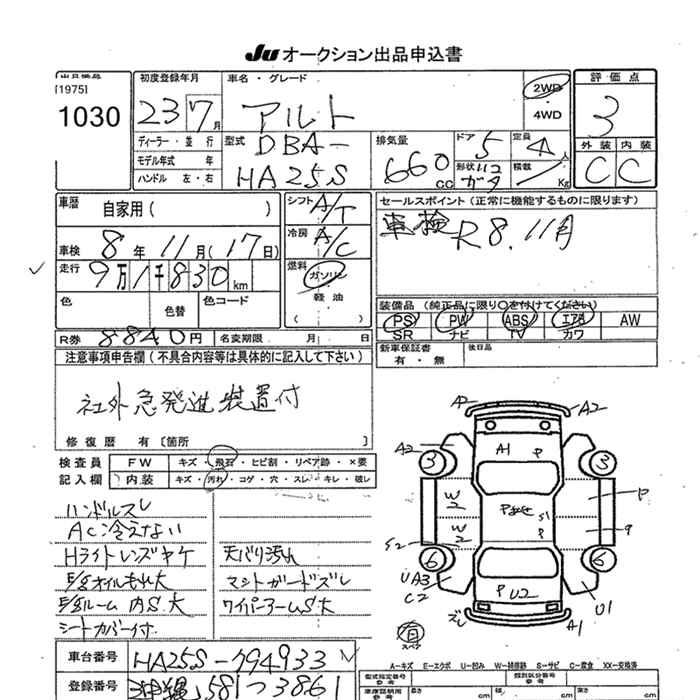 JU オークション出品申込書
出品番号
[1975]
1030
初度登録年月
23 7月
車名・グレード
アルト
2WD
4WD
評価点
3
外装 内装
C C
ディーラー・並行
モデル年式 年
ハンドル 左・右
型式
DBA-
HA25S
排気量
660 cc
ドア
5
形状
定員
4人
積載
Kg
車歴
自家用( )
車検 8年 11月(17日)
走行 9万1千830km
色
色替
色コード
シフト A/T
冷房 A/C
燃料
ガソリン
軽油
( )
セールスポイント(正常に機能するものに限ります)
車検 R8.11月
装備品(純正品に限り○を付けてください)
PS PW ABS エアB AW
SR ナビ TV カワ
新車保証書
有・無
後日品
R券 8840円
名変期限 月 日
注意事項申告欄(不具合内容等は具体的に記入して下さい)
社外急発進装置付
修復歴 有〔箇所 〕
検査員
記入欄
FW キズ・飛石・ヒビ割・リペア跡・×要
内装 キズ・汚れ・コゲ・穴・スレ・キレ・破レ
ハンドルスレ
AC冷えない
Hライトレンズヤケ
E/gオイルもれ大
E/gルーム内S大
シートカバー付
天バリ汚れ
マットガードズレ
ワイパーアームS大
A2
A2
A2
A1 P
3 3
W2
W2
P
S1
P
P
9
S2
6 6
UA3
C2
P U2
U1
ズレ
A1
有
スペア
A-キズ E-エクボ U-凹み W-補修跡 S-サビ C-腐食 XX-交換済
車台番号 HA25S-794933
型式指定番号
類別区分番号
登録番号 沖縄 581つ3861
長さ cm
幅 cm
高さ cm